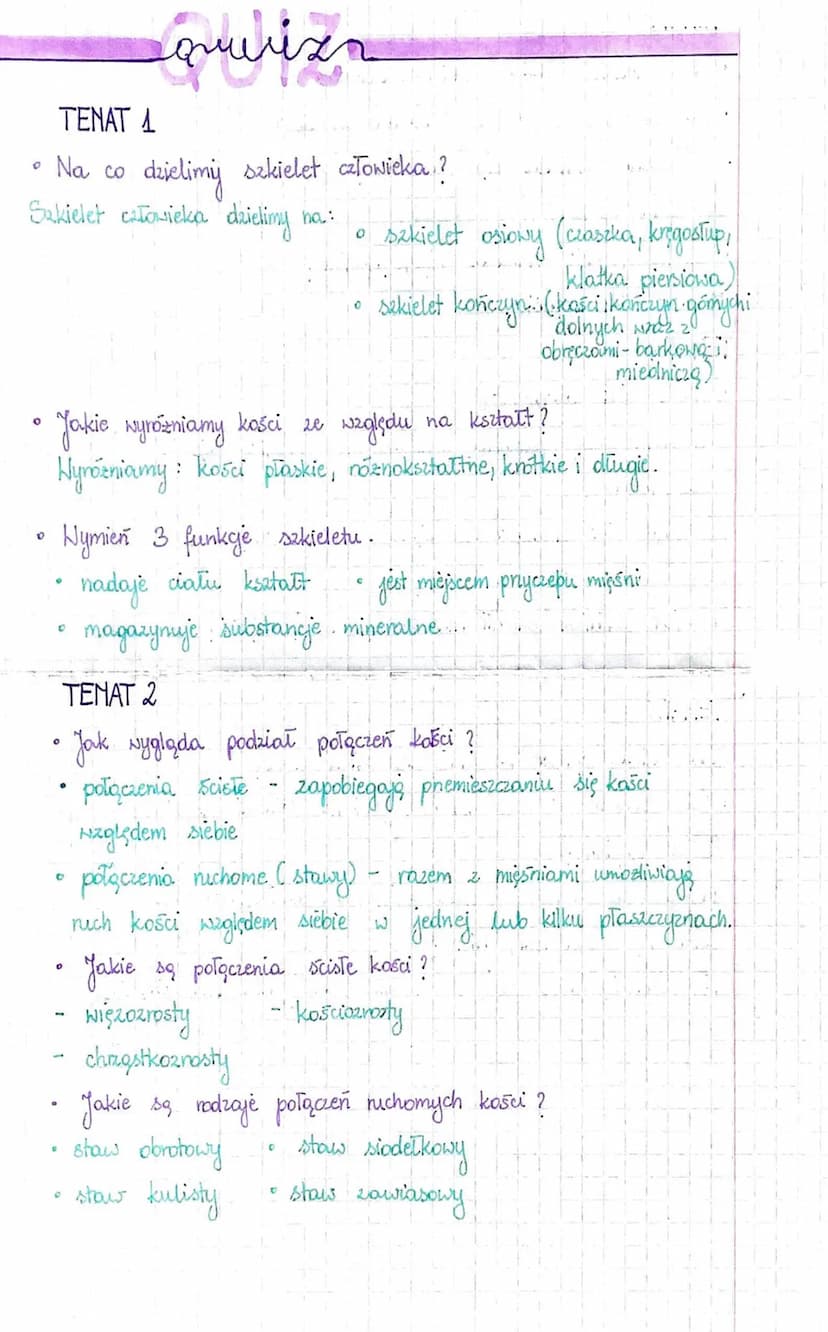 QUIZ
quiz
TEMAT 1
• Na co dzielimy szkielet człowieka?
Szkielet człowieka dzielimy na:
• szkielet osiowy (czaszka, kręgosłup,
klatka piersiowa)
• szkielet kończyn (kości kończyn górnych i
dolnych wraz z
obręczami - barkową i
miedniczą)
• Jakie wyróżniamy kości ze względu na kształt?
Wyróżniamy: kości płaskie, różnokształtne, krótkie i długie.
• Wymień 3 funkcje szkieletu.
• nadaje ciału kształt • jest miejscem przyczepu mięśni
• magazynuje substancje mineralne
TEMAT 2
• Jak wygląda podział połączeń kości?
• połączenia ścisłe - zapobiegają przemieszczaniu się kości
względem siebie
• połączenia ruchome (stawy) - razem z mięśniami umożliwiają
ruch kości względem siebie w jednej lub kilku płaszczyznach.
• Jakie są połączenia ścisłe kości?
- więzozrosty - kościozrosty
- chrząstkozrosty
• Jakie są rodzaje połączeń ruchomych kości?
• staw obrotowy • staw siodełkowy
• staw kulisty • staw zawiasowy